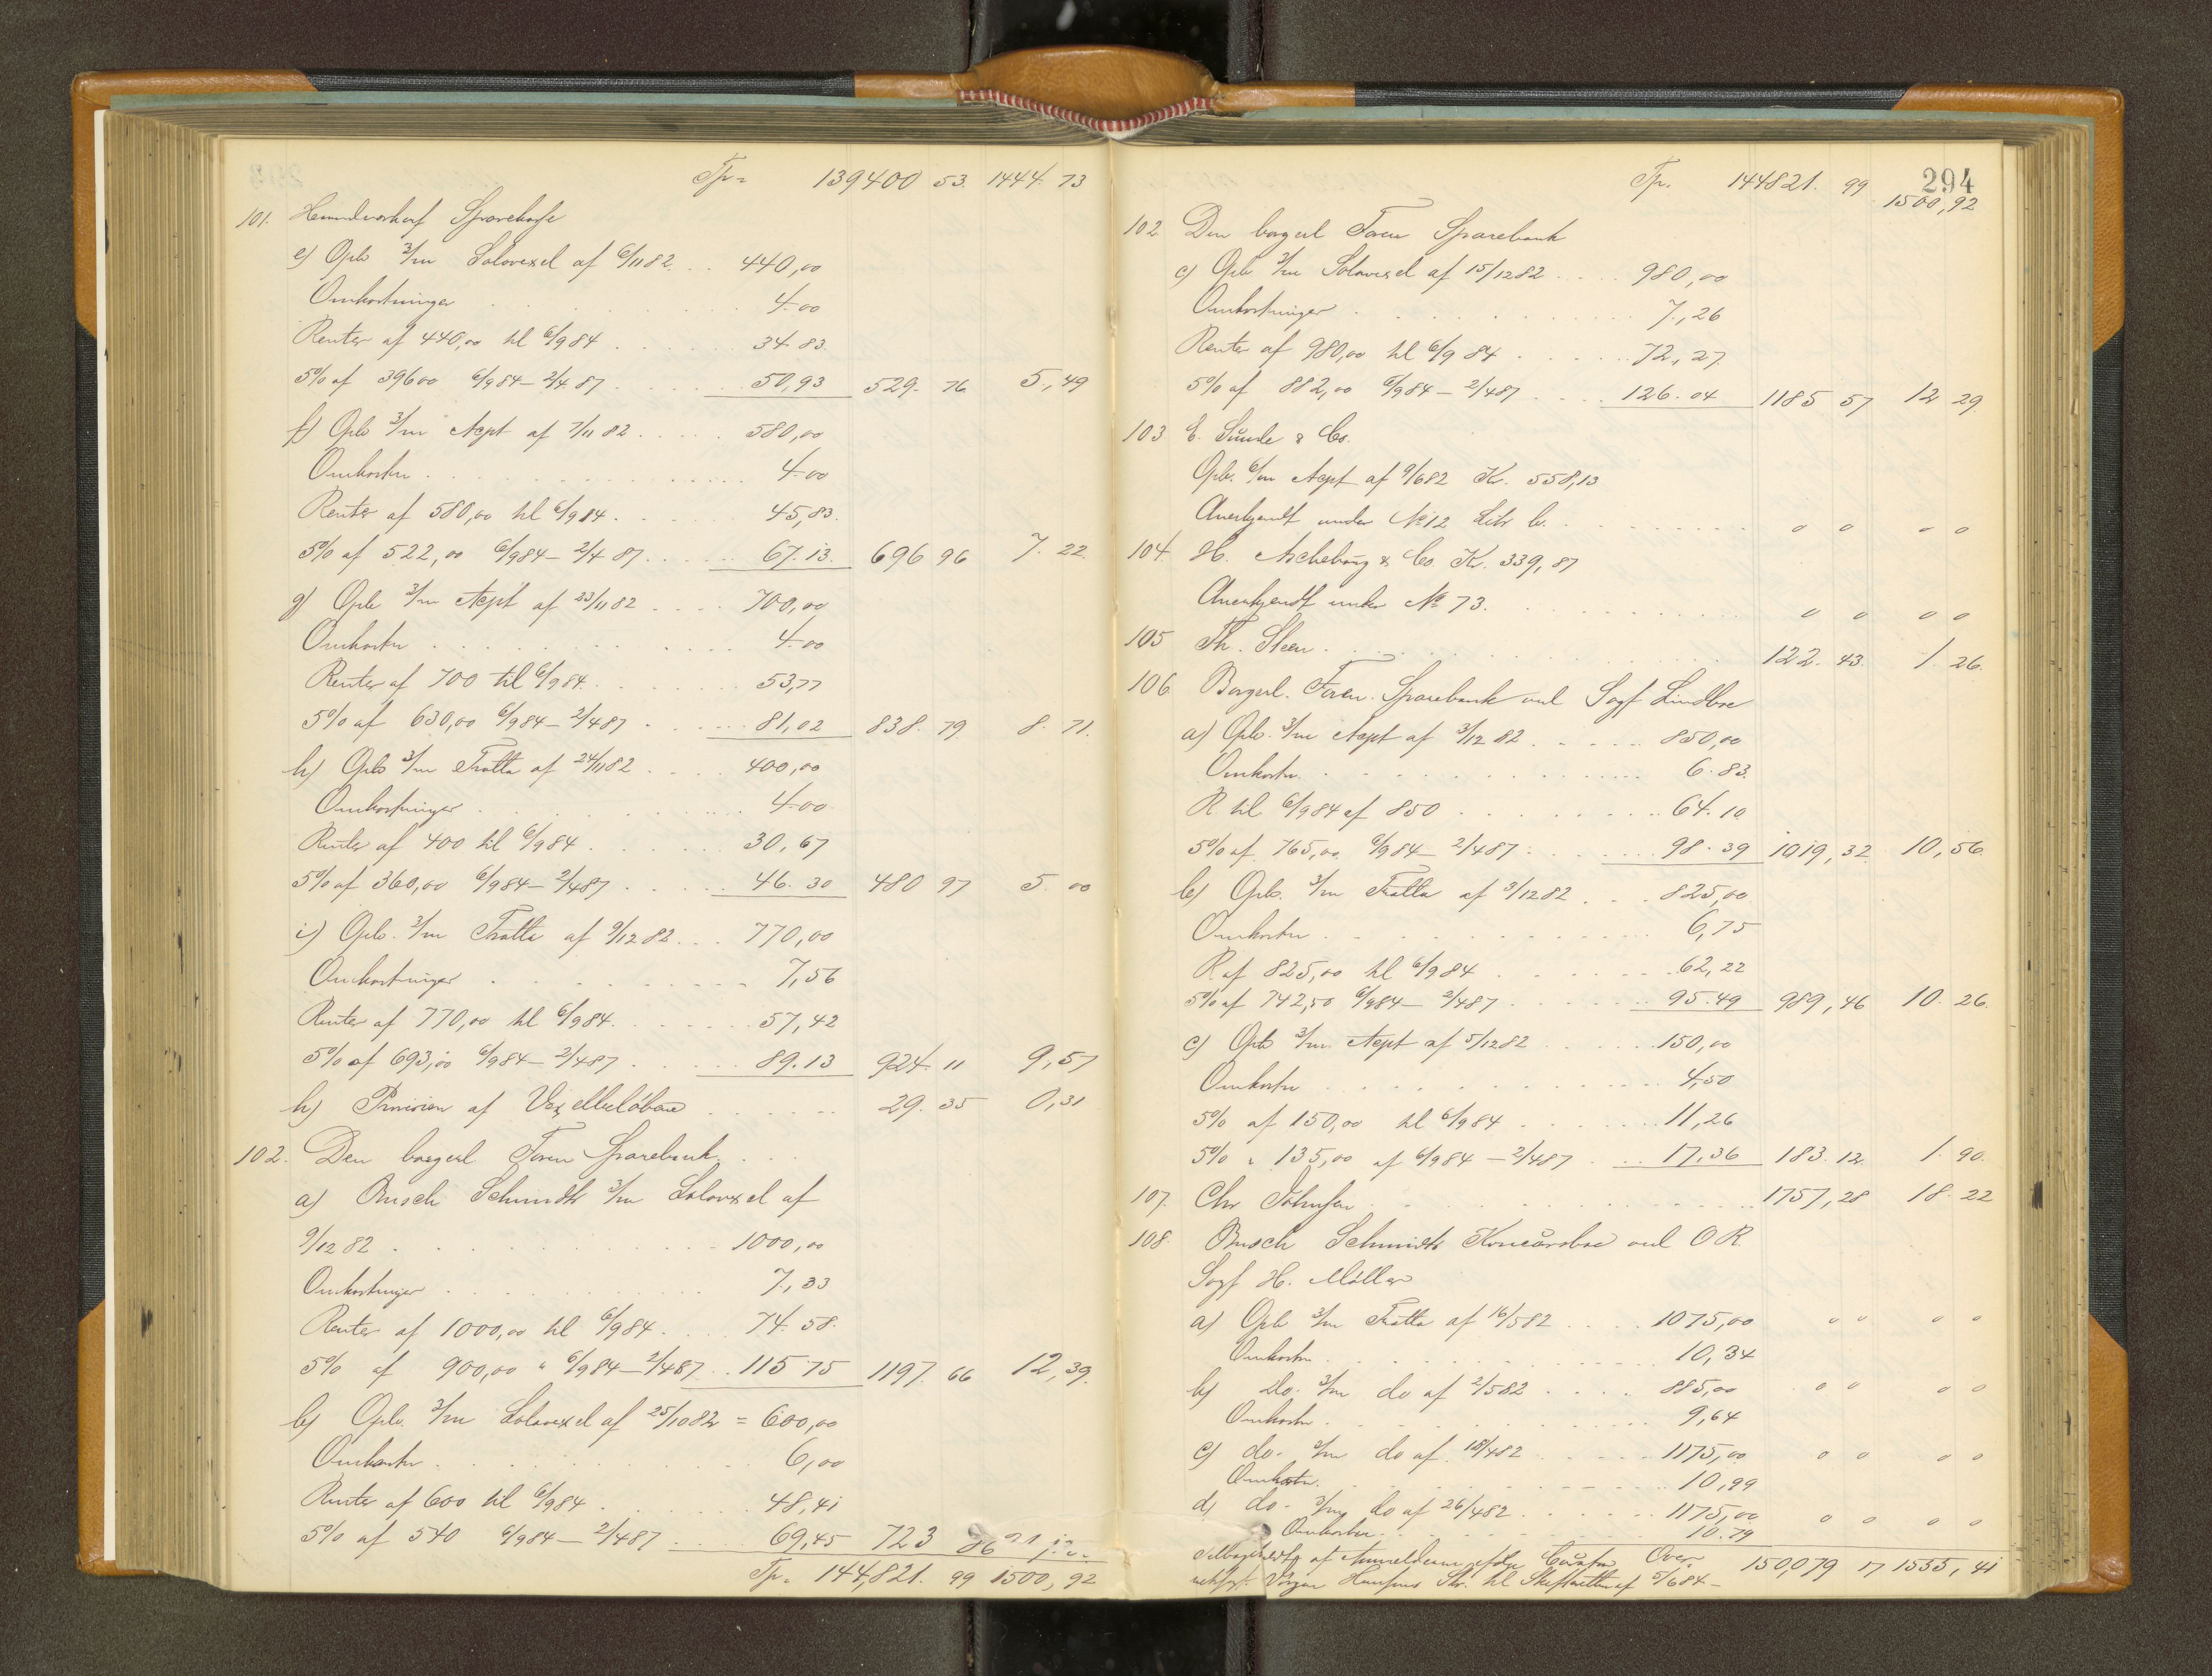 Tp = 139400 53. 1444. 73
101. Haandværkerf Sparekasse
e) Opb 3/m Solavexel af 6/11 82 . . 440,00
Omkostninger . . . 4.00
Renter af 440,00 til 6/9 84 . . . 34 83
5% af 39600 6/9 84 – 2/4 87 . . . 50,93 529. 76 5,49
f) Opb 3/m Acpt af 7/11 82 . . . 580,00
Omkostn . . . 4.00
Renter af 580,00 til 6/9 84 . . . 45,83.
5% af 522,00 6/9 84 – 2/4 87 . . . 67.13. 696 96 7. 22.
g) Opb 3/m Acpt af 23/11 82 . . . 700,00
Omkostn . . . 4.00
Renter af 700 til 6/9 84 . . . 53,77
5% af 630,00 6/9 84 – 2/4 87 . . . 81,02 838. 79. 8. 71.
h) Opb 3/m Tratta af 24/11 82 . . . 400,00
Omkostninger . . . 4.00
Renter af 400 til 6/9 84 . . . 30,67
5% af 360,00 6/9 84 – 2/4 87 . . . 46. 30 480 97 5. 00
i) Opb. 3/m Tratta af 9/12 82 . . . 770,00
Omkostninger . . . 7,56
Renter af 770,00 til 6/9 84 . . . 57,42
5% af 693,00 6/9 84 – 2/4 87 . . . 89.13 924. 11 9,57
k) Provision af Vexelbeløbene . . . 29. 35 0,31
102. Den borgerl. Foren Sparebank . . .
a) Busch Schmidts 3/m Solavexel af
9/12 82 . . . 1000,00
Omkostninger . . . 7,33
Renter af 1000,00 til 6/9 84 . . . 74. 58.
5% af 900,00 " 6/9 84 – 2/4 87 . . 115 75 1197. 66 12,39.
b) Opb. 3/m Solavexel af 25/10 82 = 600,00
Omkostn . . . 6,00
Renter af 600 til 6/9 84 . . . 48,41
5% af 540 6/9 84 – 2/4 87 . . . 69,45 723 86
Tp = 144,821. 99 1500, 92
294
Tp. 144821. 99 1500,92
102 Den borgerl Foren Sparebank
c) Opb 3/m Solavexel af 15/12 82 . . . 980,00
Omkostninger . . . 7,26
Renter af 980,00 til 6/9 84 . . . 72,27.
5% af 882,00 6/9 84 – 2/4 87 . . . 126.04 1185 57 12 29.
103 E. Sunde & Co.
Opb. 6/m Acpt af 9/6 82 Kr. 558,13
Anerkjendt under No 12 Litr b. . . . 0 0 – 0
104. H. Aschehoug & Co. Kr. 339,87
Anerkjendt under No 73. . . . 0 0 0 0
105 Th. Steen . . . 122. 43. 1. 26.
106 Borgerl. Foren. Sparebank ved Sagf Lindboe
a) Opb. 3/m Acpt af 3/12 82 . . . 850,00
Omkostn. . . . 6.83.
R til 6/9 84 af 850 . . . 64.10
5% af 765,00 6/9 84 – 2/4 87 . . . 98.39 1019,32 10,56.
b) Opb. 3/m Tratta af 3/12 82 . . . 825,00
Omkostn . . . 6,75
R af 825,00 til 6/9 84 . . . 62,22
5% af 742,50 6/9 84 – 2/4 87 . . . 95.49 989,46 10. 26.
c) Opb 3/m Acpt af 5/12 82 . . . 150,00
Omkostn . . . 4,50
5% af 150,00 til 6/9 84 . . . 11,26
5% " 135,00 af 6/9 84 – 2/4 87 . . 17,36 183.12. 1. 90.
107. Chr Johnsen . . . 1757,28 18. 22
108. Busch Schmidts Konkursbo ved O R.
Sagf H. Møller
a) Opb 3/m Tratta af 16/5 82 . . . 1075,00 0 0 0 0
Omkostn . . . 10,34
b) do. 3/m do af 2/5 82 . . . 885,00 0 0 0 0
Omkostn . . . 9,64
c) do. 3/m do af 18/4 82 . . . 1175,00 0 0 0 0
Omkostn. . . . 10,99
d) do. 3/m do af 26/4 82 . . . 1175,00 0 0 0 0
Omkostn . . . 10.79
af Anmelderen Over- 150,079 17 1535,41
til Skifteretten af 5/6 84 –